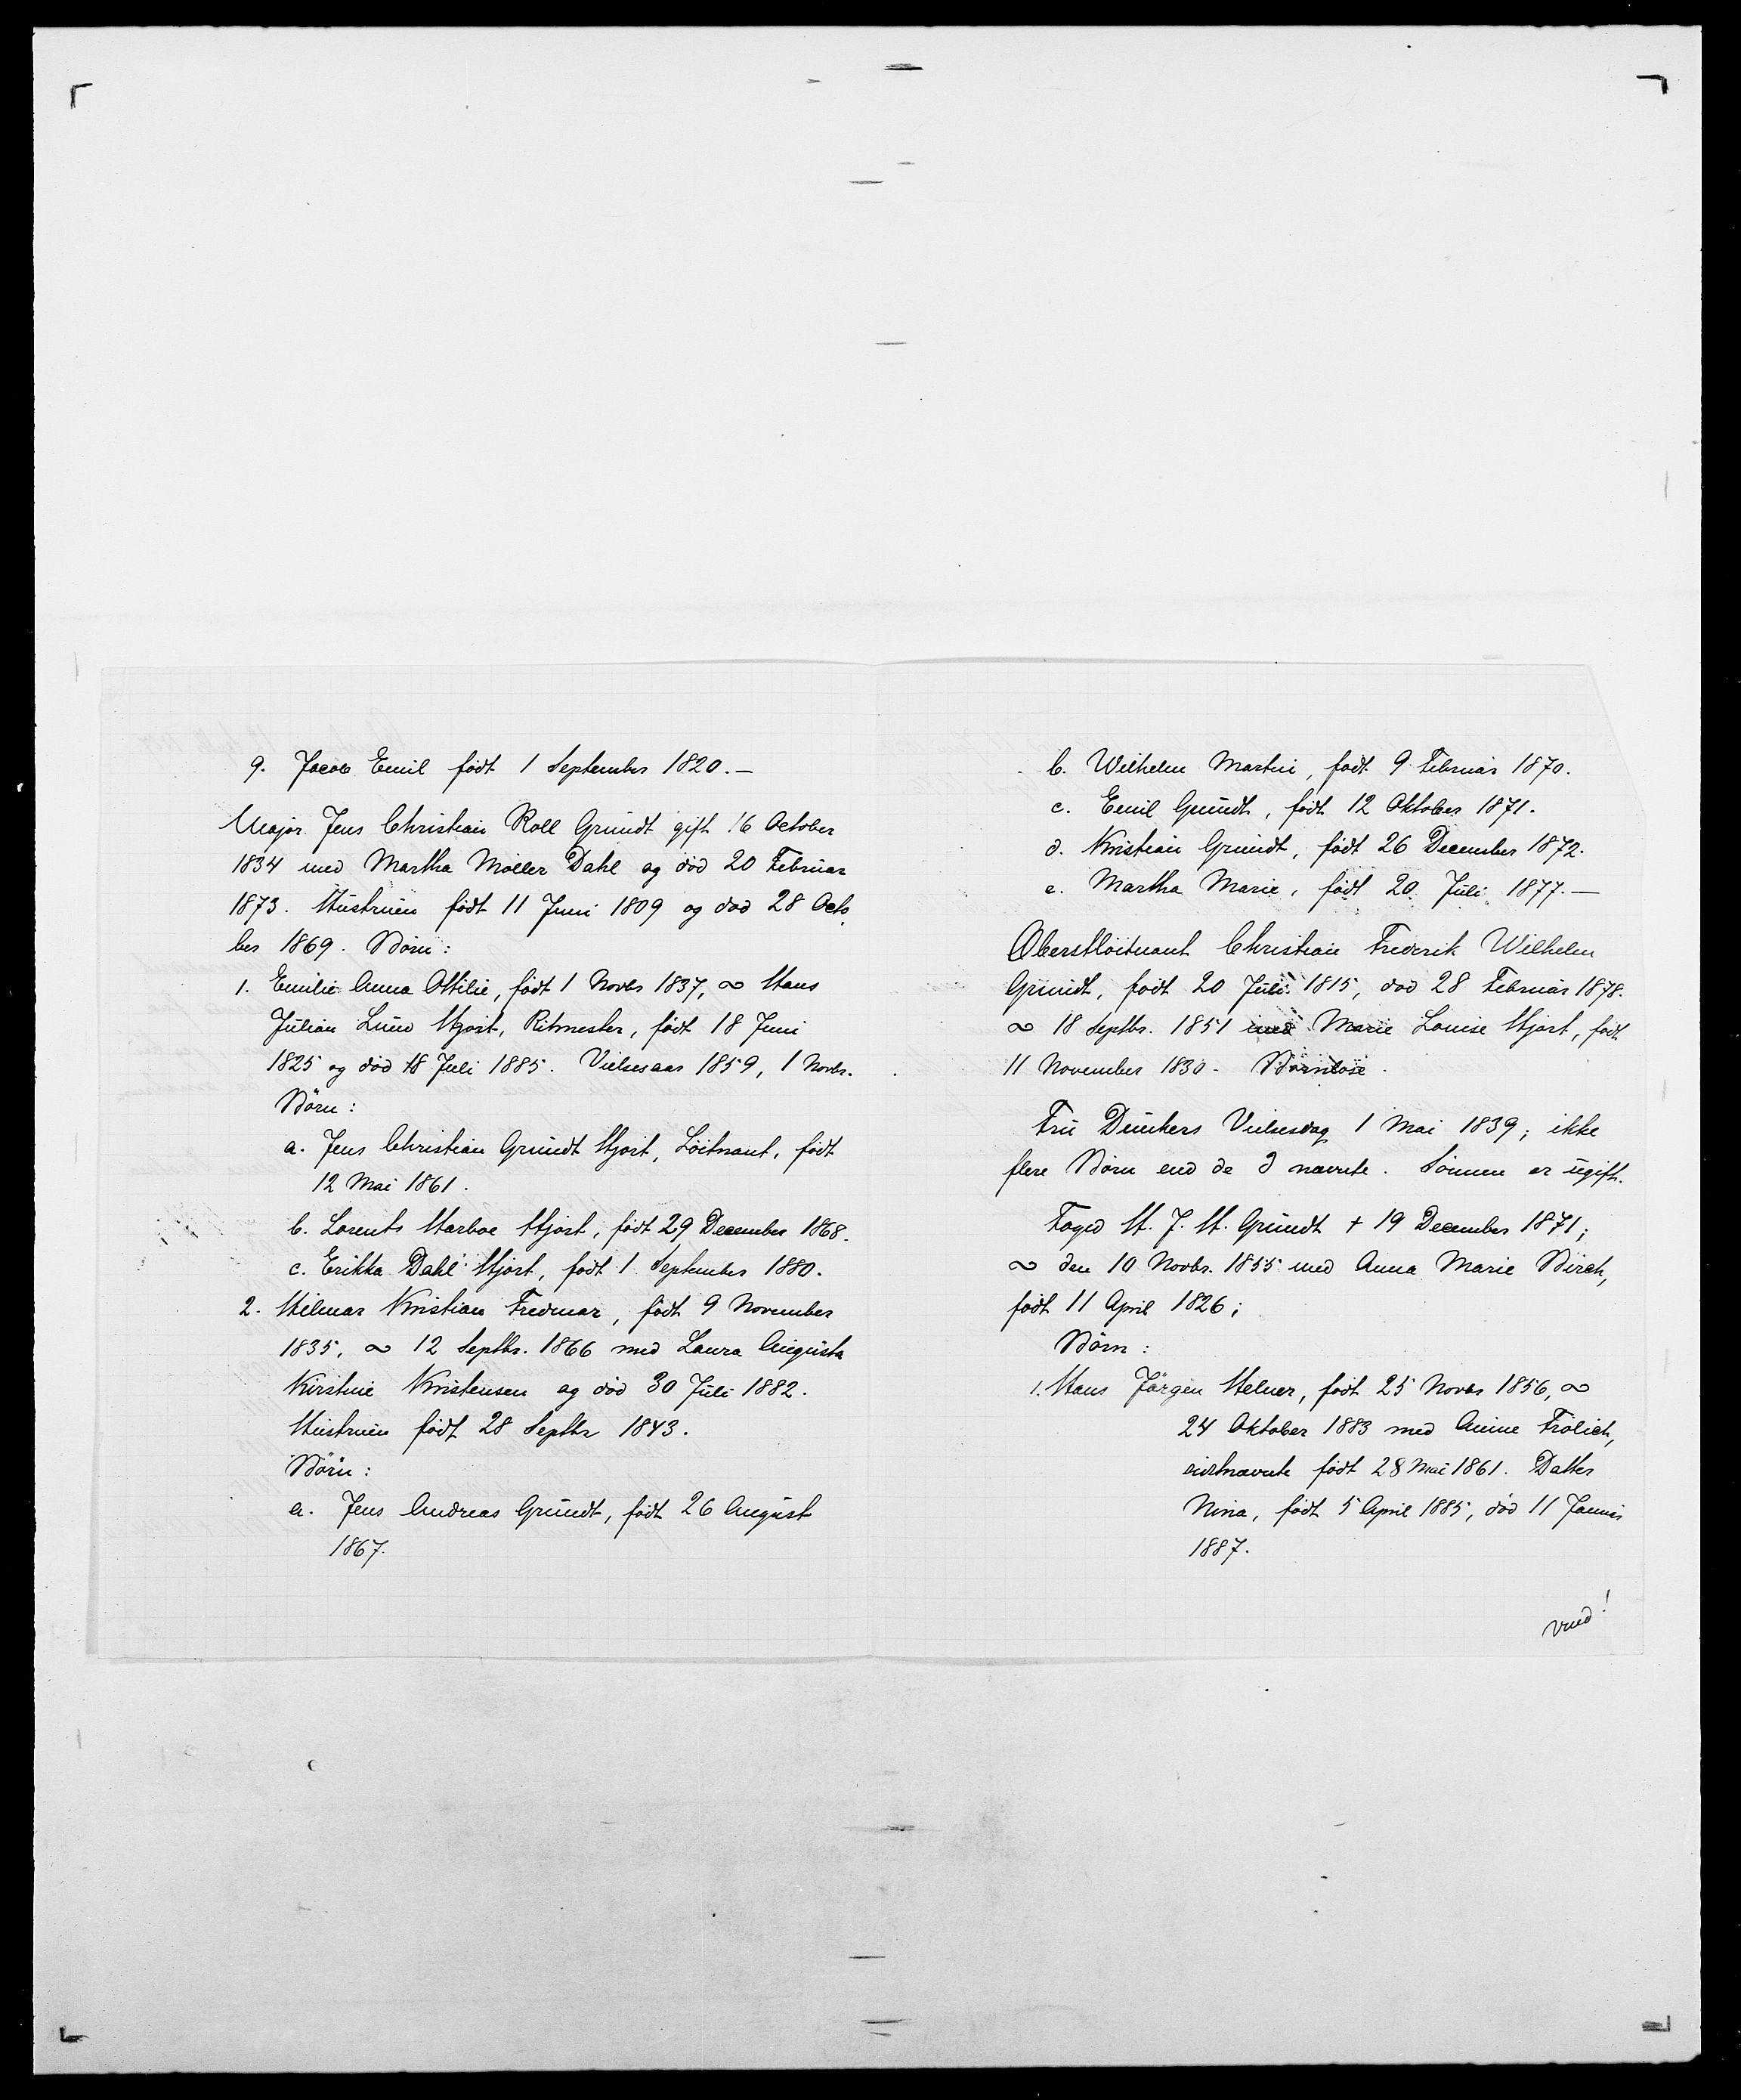 9. Jacob Emil født 1 September 1820. —
Major Jens Christian Roll Grundt gift 16 October
1834 med Martha Møller Dahl og død 20 Februar
1873. Hustruen født 11 Juni 1809 og død 28 Octo
ber 1869. Börn:
1. Emilie Anna Ottilie, født 1 Novbr 1837, ∞ Hans
Julian Lund Hjort, Ritmester, født 18 Juni
1825 og död 18 Juli 1885. Vielsesaar 1859, 1 Novbr.
Börn:
a. Jens Christian Grundt Hjort, Löitnant, født
12 Mai 1861.
b. Lorents Harboe Hjort, født 29 December 1868.
c. Erikka Dahl Hjort, født 1 September 1880.
2. Hilmar Kristian Fredmar, født 9 November
1835, ∞ 12 Septbr. 1866 med Laura Augusta
Kirstine Kristensen og död 30 Juli 1882.
Hustruen født 28 Septbr 1843.
Börn:
a. Jens Andreas Grundt, født 26 August
1867.
b. Wilhelm Martin, født 9 Februar 1870.
c. Emil Grundt, født 12 Oktober 1871.
d. Kristian Grundt, født 26 December 1872.
e. Martha Marie, født 20 Juli 1877. —
Oberstlöitnant Christian Frederik Wilhelm
Grundt, født 20 Juli 1815, død 28 Februar 1878.
∞ 18 Septbr. 1851 med Marie Louise Hjort, født
11 November 1830 - Barnløse.
Fru Dunkers Vielsesdag 1 Mai 1839; ikke
flere Börn end de 2 nævnte. Sönnen er ugift.
Foged H. J. H. Grundt + 19 December 1871;
∞ den 10 Novbr. 1855 med Anna Marie Birch,
født 11 April 1826;
Börn:
1. Hans Jörgen Helner, født 25 Novbr 1856, ∞
24 Oktober 1883 med Anine Frölich,
sidstnævnte født 28 Mai 1861. Datter
Nina, født 5 April 1885, död 11 Januar
1887.
vend!